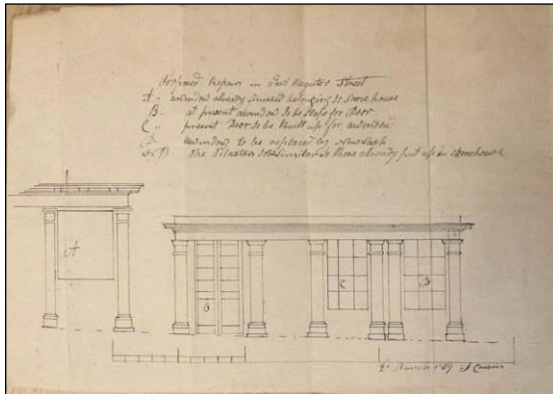 Proposed Repairs in West Register Street
A " a window already finished belonging to Storehouse
B - at present a window to be for Door
C " present Door to be built up for a window
D a window to be replaced by
The Pilasters to be similar to those already put up in Storehouse
A
B
C
D
2d March